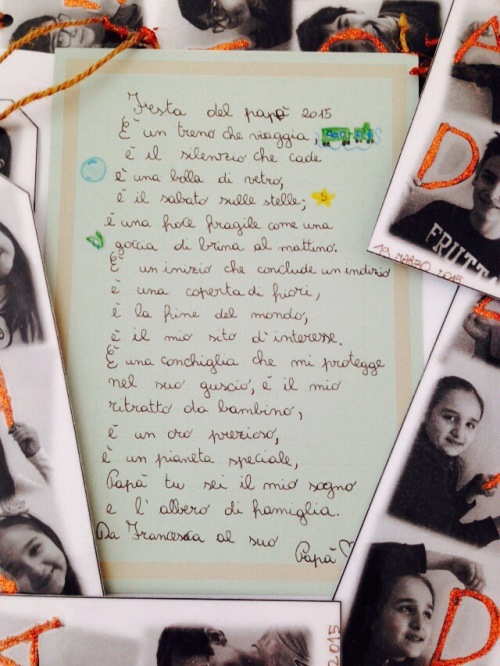 Festa del papà 2015
È un treno che viaggia,
è il silenzio che cade
è una bolla di vetro,
è il sabato sulla stelle; 5
è una voce fragile come una
goccia di brina al mattino.
È un inizio che conclude un indizio
è una coperta di fiori,
è la fine del mondo,
è il mio sito d'interesse.
È una conchiglia che mi protegge
nel suo guscio, è il mio
ritratto da bambino,
è un oro prezioso,
è un pianeta speciale,
Papà tu sei il mio sogno
e l'albero di famiglia.
Da Francesca al suo
Papà
A
D
FRUTT
19 MARZO 2015
D
A
2015